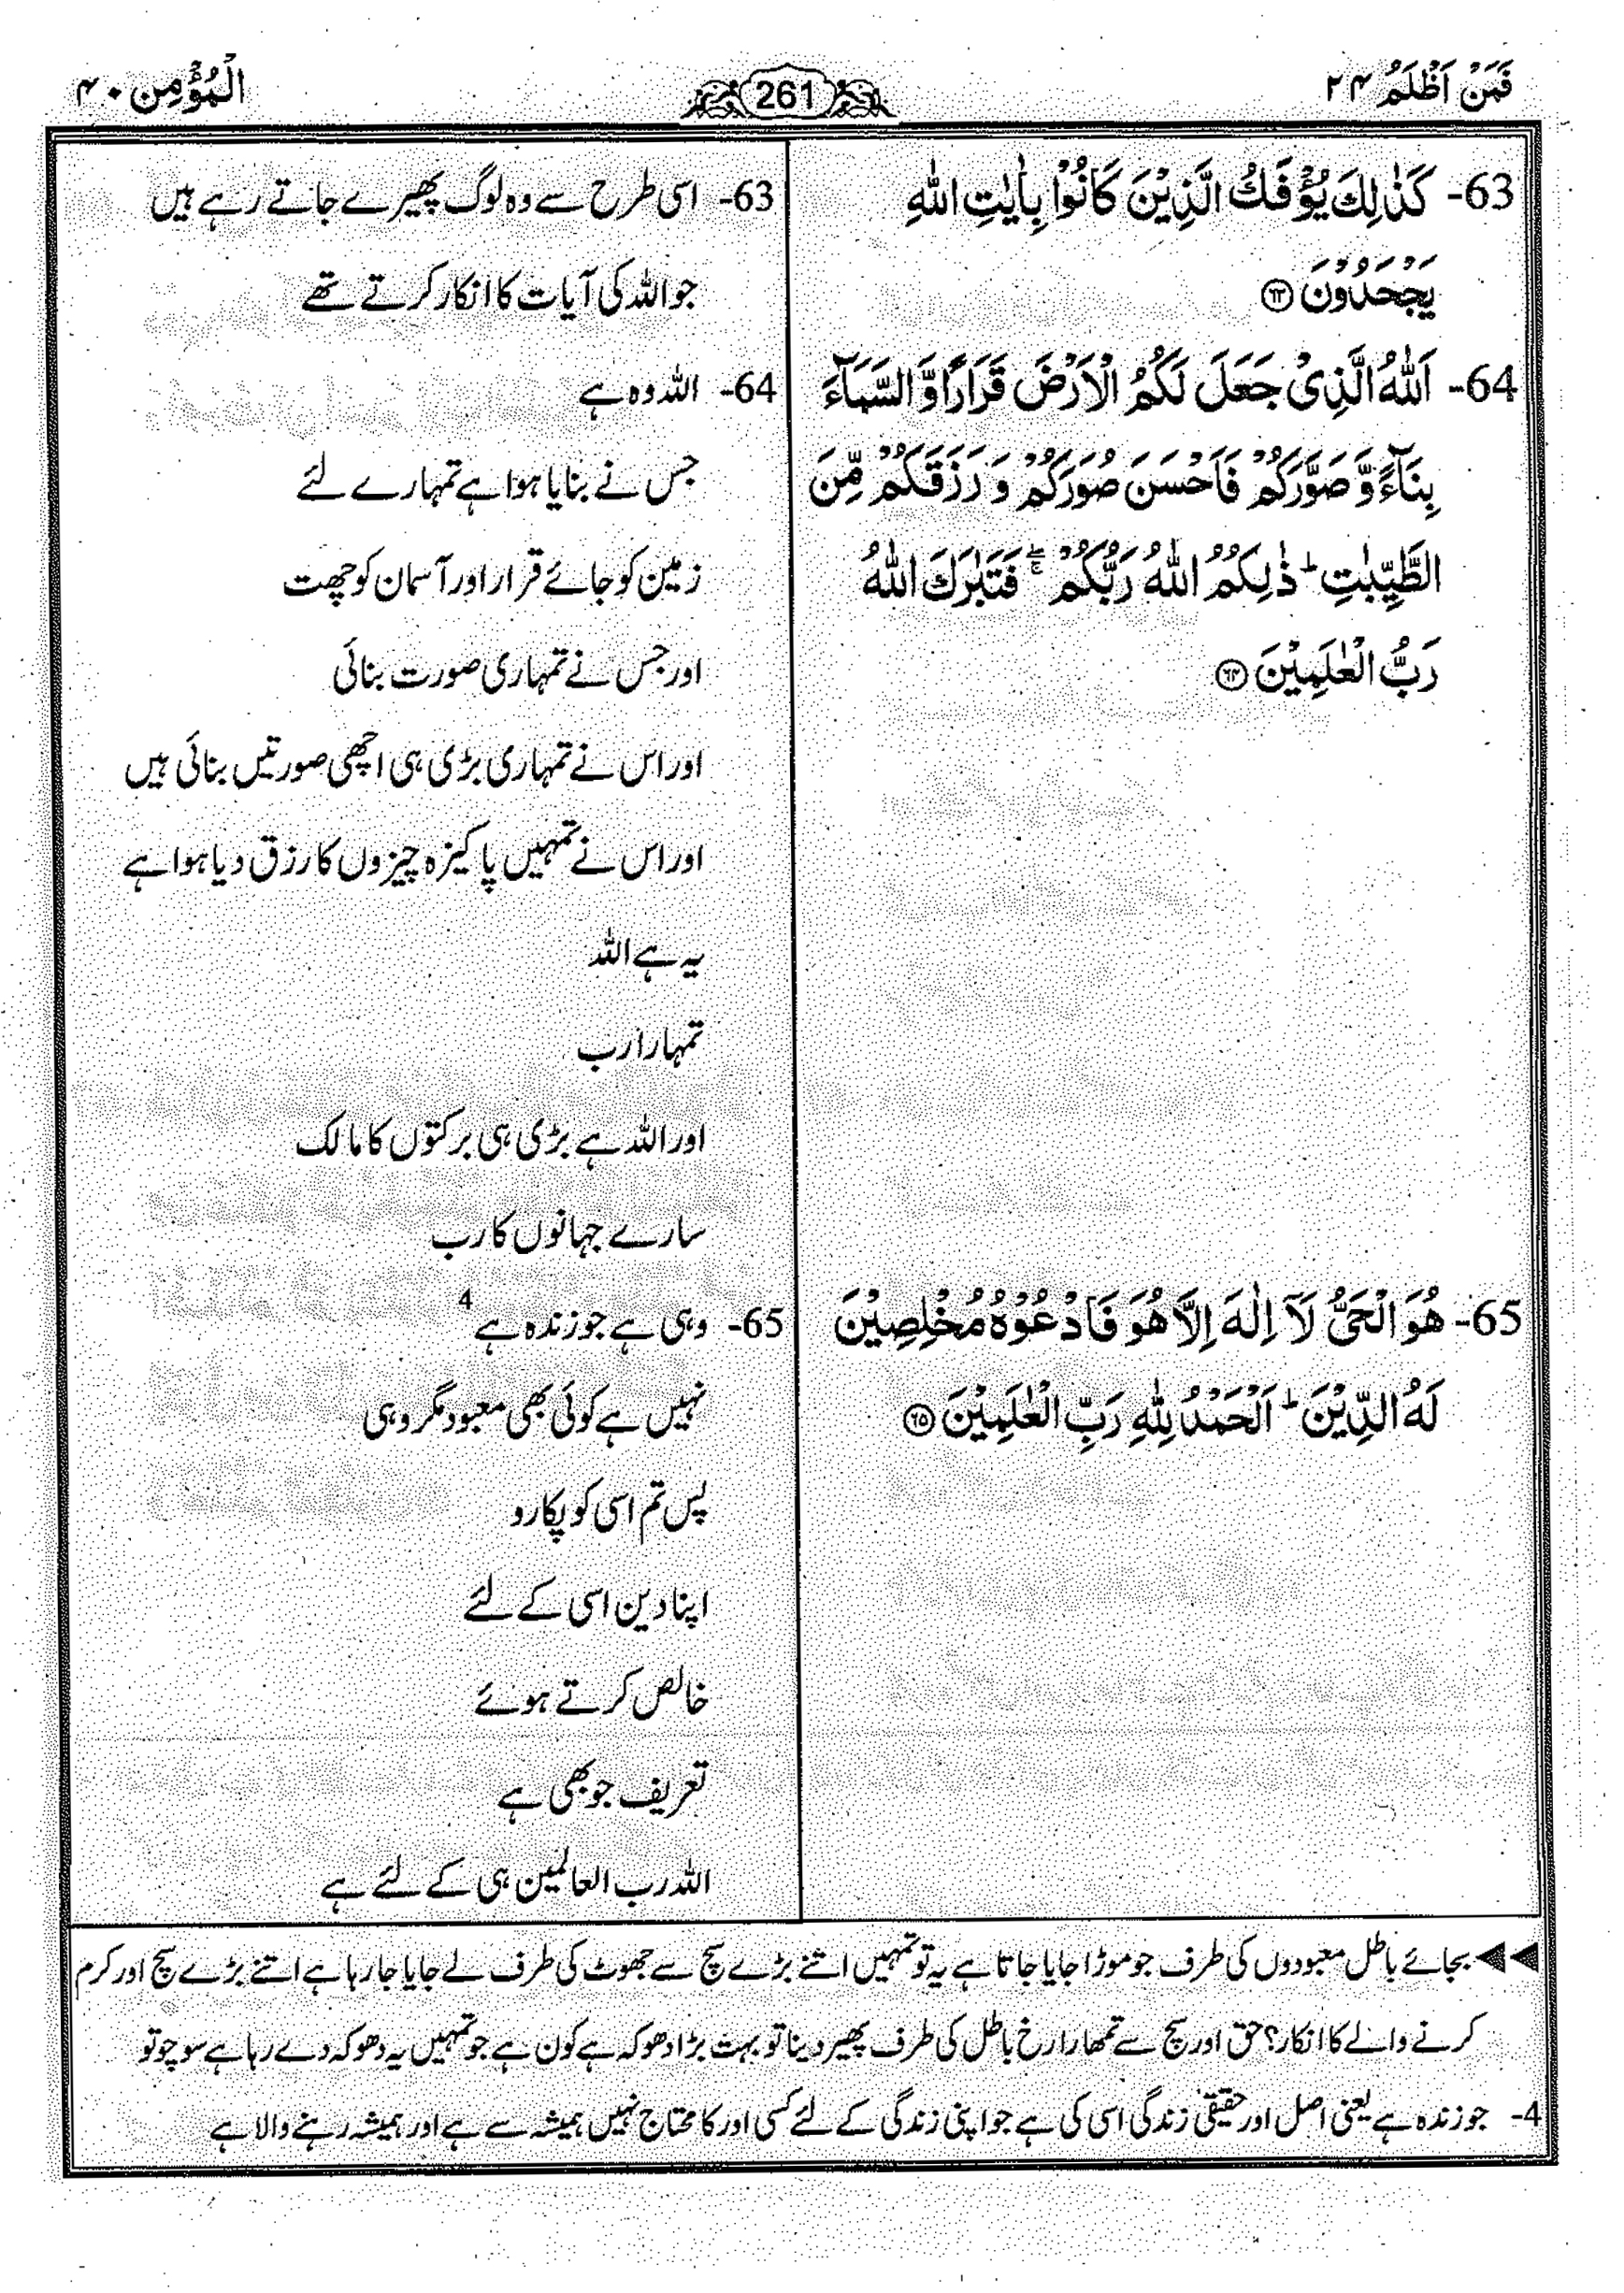 فَمَنْ اَظْلَمُ ۲۴
261
الْمُؤْمِن ۴۰
63- كَذٰلِكَ يُؤْفَكُ الَّذِيْنَ كَانُوْا بِاٰيٰتِ اللّٰهِ
يَجْحَدُوْنَ ۶۳
64- اَللّٰهُ الَّذِيْ جَعَلَ لَكُمُ الْاَرْضَ قَرَارًا وَّ السَّمَآءَ
بِنَآءً وَّ صَوَّرَكُمْ فَاَحْسَنَ صُوَرَكُمْ وَ رَزَقَكُمْ مِّنَ
الطَّيِّبٰتِ ؕ ذٰلِكُمُ اللّٰهُ رَبُّكُمْ ۚۖ فَتَبٰرَكَ اللّٰهُ
رَبُّ الْعٰلَمِيْنَ ۶۴
65- هُوَ الْحَيُّ لَاۤ اِلٰهَ اِلَّا هُوَ فَادْعُوْهُ مُخْلِصِيْنَ
لَهُ الدِّيْنَ ؕ اَلْحَمْدُ لِلّٰهِ رَبِّ الْعٰلَمِيْنَ ۶۵
63- اسی طرح سے وہ لوگ پھیرے جاتے رہے ہیں
جو اللہ کی آیات کا انکار کرتے تھے
64- اللہ وہ ہے
جس نے بنایا ہوا ہے تمہارے لئے
زمین کو جائے قرار اور آسمان کو چھت
اور جس نے تمہاری صورت بنائی
اور اس نے تمہاری بڑی ہی اچھی صورتیں بنائی ہیں
اور اس نے تمہیں پاکیزہ چیزوں کا رزق دیا ہوا ہے
یہ ہے اللہ
تمہارا رب
اور اللہ ہے بڑی ہی برکتوں کا مالک
سارے جہانوں کا رب
65- وہی ہے جو زندہ ہے 4
نہیں ہے کوئی بھی معبود مگر وہی
پس تم اسی کو پکارو
اپنا دین اسی کے لئے
خالص کرتے ہوئے
تعریف جو بھی ہے
اللہ رب العالمین ہی کے لئے ہے
◄◄ بجائے باطل معبودوں کی طرف جو موڑا جایا جاتا ہے یہ تو تمہیں اتنے بڑے سچ سے جھوٹ کی طرف لے جایا جا رہا ہے اتنے بڑے سچ اور کرم
کرنے والے کا انکار؟ حق اور سچ سے تمھارا رخ باطل کی طرف پھیر دینا تو بہت بڑا دھوکہ ہے کون ہے جو تمہیں یہ دھوکہ دے رہا ہے سوچو تو
4- جو زندہ ہے یعنی اصل اور حقیقی زندگی اسی کی ہے جو اپنی زندگی کے لئے کسی اور کا محتاج نہیں ہمیشہ سے ہے اور ہمیشہ رہنے والا ہے